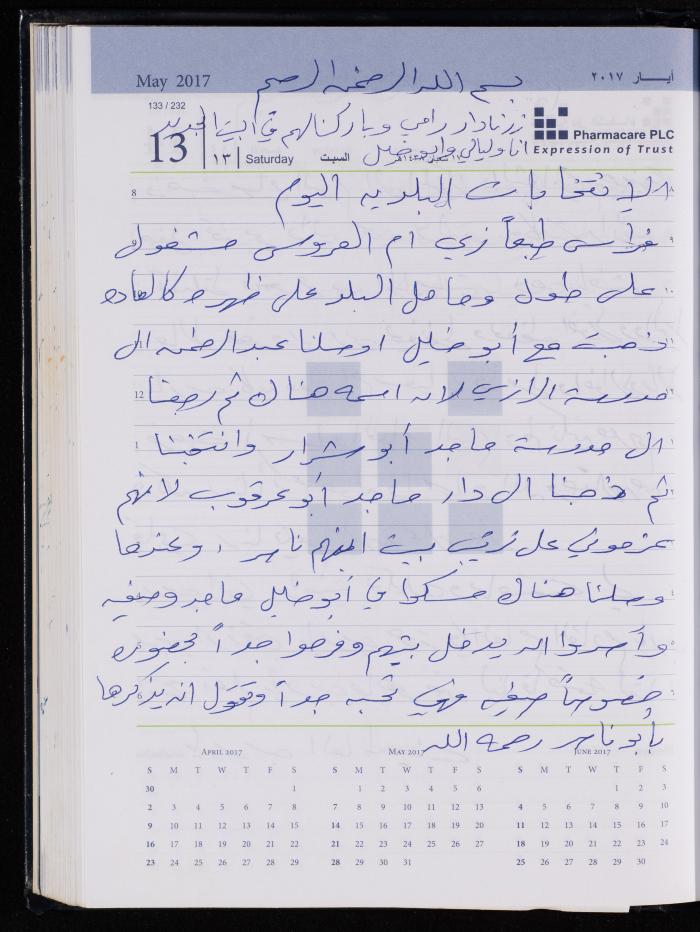 May 2017
أيــار ٢٠١٧
بسم الله الرحمن الرحيم
133 / 232
زرنا دار رامي وباركنالهم في البيت الجديد
Pharmacare PLC
Expression of Trust
13 | ١٣ | Saturday السبت
انا وليالي وابو خليل
8 الانتخابات البلديه اليوم
فراس طبعاً زي ام العروس مشغول
على طول وحامل البلد على ظهره كالعاده
ذهبت مع أبو خليل اوصلنا عبد الرحمن الى
12 مدرسة الرازي لانه اسمه هناك ثم رجعنا
1 الى مدرسة ماجد أبو شرار وانتخبنا
ثم ذهبنا الى دار ماجد أبو عرقوب لانهم
عزموني على بيت ابنهم ناصر ، وعندما
وصلنا هناك مسكوا في أبو خليل ماجد وصفيه
وأصروا انه يدخل بيتهم وفرحوا جداً بحضوره
خصوصاً صفيه فهي تحبه جداً وتقول انه يذكرها
بابو ناصر رحمه الله
APRIL 2017
S M T W T F S
30 1
2 3 4 5 6 7 8
9 10 11 12 13 14 15
16 17 18 19 20 21 22
23 24 25 26 27 28 29
MAY 2017
S M T W T F S
1 2 3 4 5 6
7 8 9 10 11 12 13
14 15 16 17 18 19 20
21 22 23 24 25 26 27
28 29 30 31
JUNE 2017
S M T W T F S
1 2 3
4 5 6 7 8 9 10
11 12 13 14 15 16 17
18 19 20 21 22 23 24
25 26 27 28 29 30